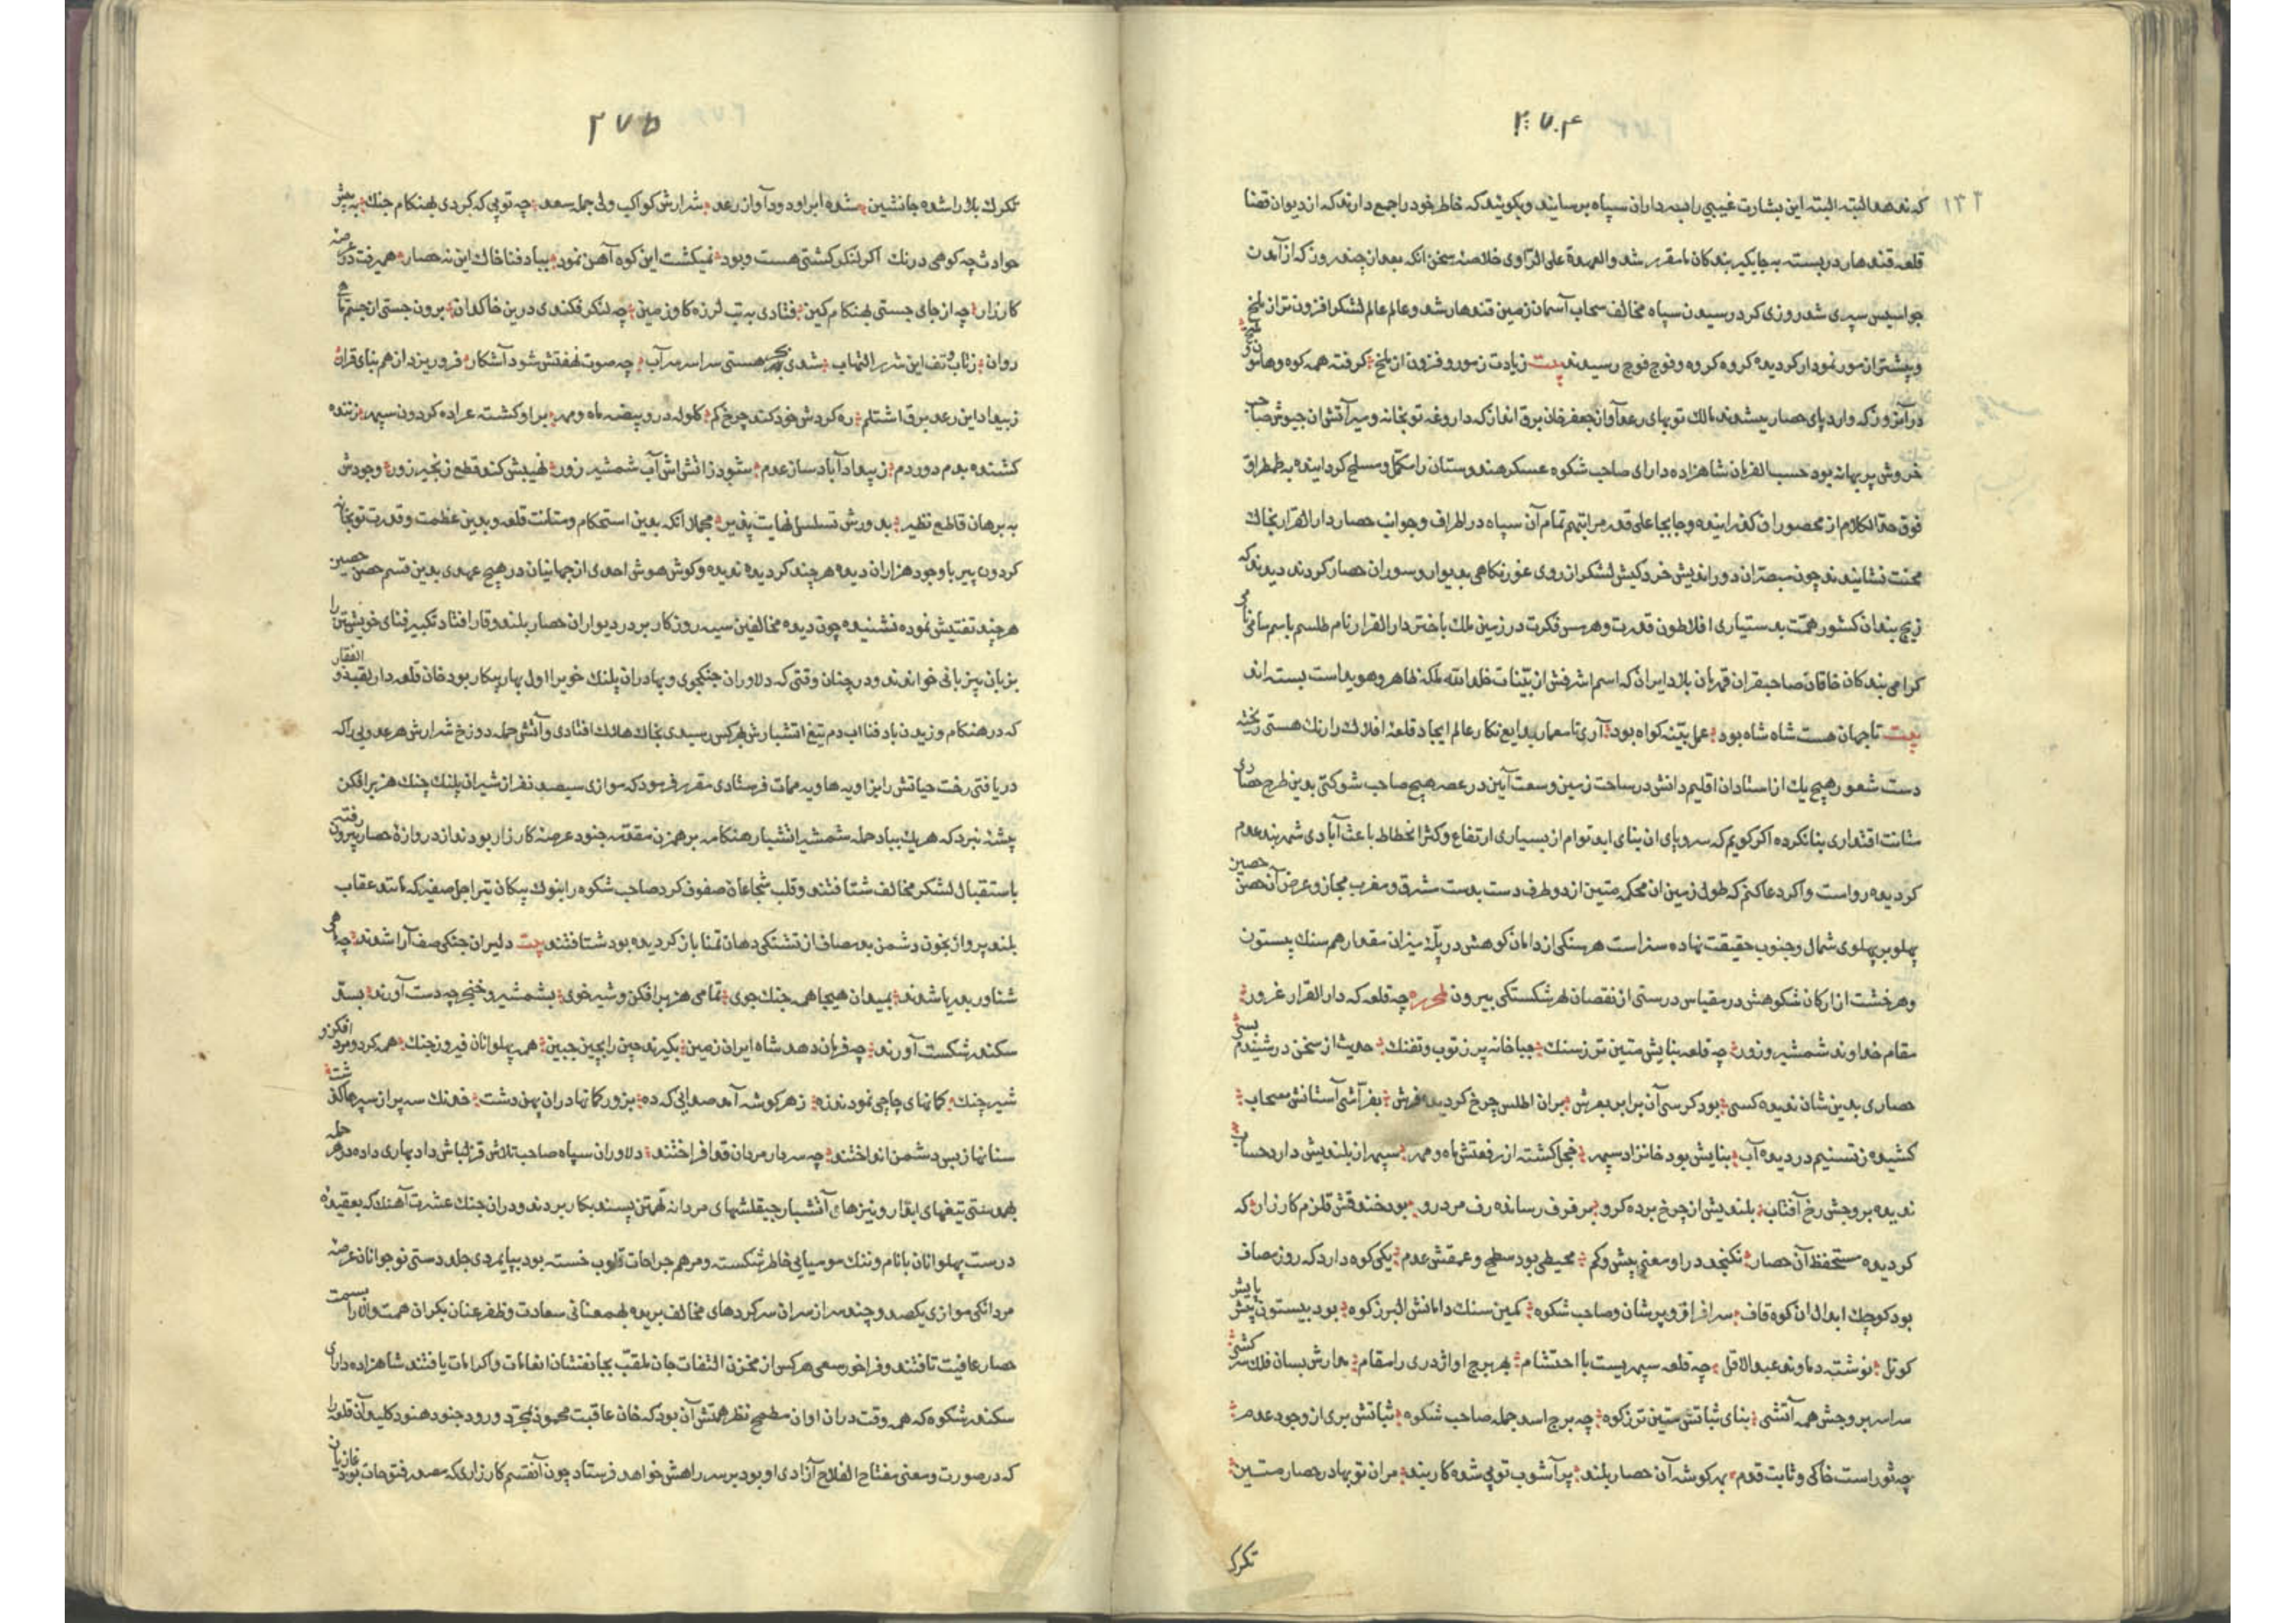 ۲۷۴
۱۳۲
که نعد صد البته البته این بشارت غیبی را بسرداران سپاه برسانید و بکویند که خاطر خود را جمع دارند که از دیوان قضا
قلعه قندهار دربسته به جایکیر بندکان ما مقرر شد والعهدة علی الراوی خلاصه سخن انکه بعد از چند روز که از آمدن
جواسیس سپری شد روزی کرد رسیدن سپاه مخالف سحاب آسمان زمین قندهار شد و عالم عالم لشکر افزون تر از ملخ
و بیشتر از مور نمودار کردیده کروه کروه و فوج فوج رسیدند بیت زیادت ز مور و فزون از ملخ کرفته همه کوه و هامون
در آنروز که وارد پای حصار میشدند مالک توپهای رعد آواز جعفر خان برق انداز که داروغه توپخانه و میر آتش ان جیوش صاحب
خروش پر بهانه بود حسب الفرمان شاهزاده دارای صاحب شکوه عسکر هندوستان را مکمل و مسلح کردانیده به طمطراق
فوق حد الکلام از محصوران کذرانیده و جابجا علی قدر مراتبهم تمام آن سپاه در اطراف و جوانب حصار دار القرار بخاک
محنت نشانیدند چون مبصران دور اندیش خرد کیش لشکر از روی غور نکاهی بدیوار و سوران حصار کردند دیدند که
زیج بندان کشور همت بدستیاری افلاطون قدرت و هرمس فکرت در زمین ملک باختر دار القرار نام طلسم باسم سامی نامی
کرامی بندکان خاقان صاحبقران قهرمان بلاد ایران که اسم اشرفش از بینات خلد الله ملکه ظاهر و هویداست بسته اند
بیت تا جهان هست شاه شاه بود عمل بینه کواه بود آری تا معمار بدایع نکار عالم ایجاد قلعه افلاک را رنک هستی ریخته
دست شعور هیچ یک از استادان اقلیم دانش در ساحت زمین وسعت آیین در عصر هیچ صاحب شوکتی بدین طرح حصاری
متانت اقتداری بنا نکرده اکر کویم که سروپای ان بنای ابد توام از بسیاری ارتفاع و کثرا نخطاط باعث آبادی شهر بند عدم
کردیده رواست و اکر دعا کنم که طول زمین ان محکمه متین از دو طرف دست بدست مشرق و مغرب مجاز و عرض آن حصن حصین
پهلو بر پهلوی شمال و جنوب حقیقت نهاده سزاست هر سنکی از دامان کوهش در پله میزان مقدار هم سنک بیستون
و هر خشت از ارکان شکوهش در مقیاس درستی از نقصان هر شکستکی بیرون چه قلعه که دار القرار غرور
مقام خداوند شمشیر و زور چه قلعه بنایش متین تر ز سنک جبا خانه پر ز توپ و تفنک حدیث از سخن در شنیدم بسی
حصاری بدین شان ندیده کسی بود کرسی آن برابر بعرش بران اطلس چرخ کردیده فرش بفراشی آستانش سحاب
کشیده ز تسنیم در دیده آب بنایش بود خانزاد سپهر خجل کشته از رفعتش ماه و مهر سپهر از بلندیش دارد حساب
ندیده بروجش رخ آفتاب بلندیش از چرخ برده کرو برفرف رسانده رف مردرو بود خندقش قلزم کارزار که
کردیده مستحفظ آن حصار نکنجد در او معنی بیش و کم محیطی بود سطح و عمقش عدم یکی کوه دارد که روز مصاف
بود کوچک ابدال ان کوه قاف سرافراق و پرشان و صاحب شکوه کمین سنک دامانش البرز کوه بود بیستون پیش پایش
کوتل نوشته دماوند عبد الاقل چه قلعه سپهریست با احتشام بهر برج او اژدری را مقام هارش بسان فلک سرکشی
سراسر بروجش همه آتشی بنای ثباتش متین تر ز کوه چه برج اسد جمله صاحب شکوه ثباتش بری از وجود عدم
چه ثور است خاکی و ثابت قدم بهر کوشه آن حصار بلند پر آشوب توپی شده کاربند مران توپها در حصار متین
تکرک
۲۷۵
تکرک بلا را شده جانشین شده ابر او دود و آواز رعد شرارش کواکب ولی جمله سعد چه توپی که کردی بهنکام جنک به پیش
حوادث چه کوهی درنک اکر لنکر کشتی هست و بود نمیکشت این کوه آهن نمود بباد فنا خاک این نه حصار همیرفت در عرصه
کارزار چه از جای جستی بهنکام کین فتادی به تب لرزه کاو زمین چه لنکر فکندی درین خاکدان برون جستی از جسم ماهی
روان ز تاب و تف این شرر التهاب شدی بحر هستی سراسر سراب چه صوت نهفتش شود آشکار فرو ریزد از هم بنای قرار
ز بیداد این رعد برق اشتلم ره کردش خود کند چرخ کم کلوله در و بیضه ماه و مهر براو کشته عراده کردون سپهر زننده
کشنده بدم دور دم ز بیداد آباد ساز عدم شود ز اتش اش آب شمشیر زور نهیبش کند قطع زنجیر زور وجودش
به برهان قاطع نظیر بدورش تسلسل نهایت پذیر مجملا انکه بدین استحکام و متانت قلعه و بدین عظمت و قدرت توپخانه
کردون پیر با وجود هزاران دیده هر چند کردیده ندیده و کوش هوش احدی از جهانیان در هیچ عهدی بدین قسم حصن حصین
هر چند تفتیش نموده نشنیده چون دیده مخالفین سیه روزکار بر در دیواران حصار بلند وقار افتاد تکبیر فنای خویشتن را
بزبان بیزبانی خواندند و در چنان وقتی که دلاوران جنکجوی و بهادران پلنک خوی را اول بهار پیکار بود خان قلعه دار بقبه ذو الفقار
که در هنکام وزیدن باد فنا اب دم تیغ اتشبارش بهر کس رسیدی بخاک هلاک افتادی و آتش حمله دوزخ شرارش هر عدوی را که
دریافتی رخت حیاتش را بزاویه هاویه ممات فرستادی مقرر فرمود که موازی سیصد نفر از شیران پلنک چنک هزبر افکن
بیشه نبرد که هر یک بباد حمله شمشیر اتشبار هنکامه برهمزن مقدمه جنود عرصه کارزار بودند از دروازه حصار بیرون رفته
باستقبال لشکر مخالف شتافتند و قلب شجاعان صفوف کرد صاحب شکوه را بنوک پیکان تیر اجل صفیر که مانند عقاب
بلند پرواز بخون دشمن بد مصاف از تشنکی دهان تمنا باز کردیده بود شتافتند بیت دلیران جنکی صف آرا شدند چه ماهی
شناور بدریا شدند بمیدان هیجا همه جنک جوی تمامی هزبر افکن و شیر خوی بشمشیر و خنجر چه دست آورند بسد
سکندر شکست آورند چه فرمان دهد شاه ایران زمین بکیرند چین را بچین جبین همه پهلوانان فیروز جنک همه کرد و مرد افکن و
شیر چنک کمانهای چاچی نمودند زه ز هر کوشه آمد صدایی که ده بزور کمانها دران پهن دشت خدنک سه پر از سپرها کذشت
سنانها ز بس دشمن انداختند چه سر بار مردان قد افراختند دلاوران سپاه صاحب تلاش قزلباش داد بهاری داده در هر حمله
بهمدستی تیغهای ابدار و نیزهای آتشبار چپقلشهای مردانه تهمتن پسند بکار بردند و دران جنک عشرت آهنک که بعقیده
درست پهلوانان با نام و ننک مومیایی خاطر شکسته و مرهم جراحات قلوب خسته بود بپایمردی جلد دستی نوجوانان عرصه
مردانکی موازی یکصد و چند سر از سران سر کردهای مخالف بریده بهمعنانی سعادت و ظفر عنان یکران همت والا را بسمت
حصار عافیت تافتند و فراخور سعی هر کس از مخزن التفات جان ملقب بجانفشان انعامات و اکرامات یافتند شاهزاده دارای
سکندر شکوه که همه وقت دران اوان مطمح نظر همتش آن بود که خان عاقبت محمود بمجرد ورود جنود هنود کلید آن قلعه را
که در صورت و معنی مفتاح الفلاح آزادی او بود بر سر راهش خواهد فرستاد چون آنقسم کارزاری که مصدر فتوحات بود از غازیان